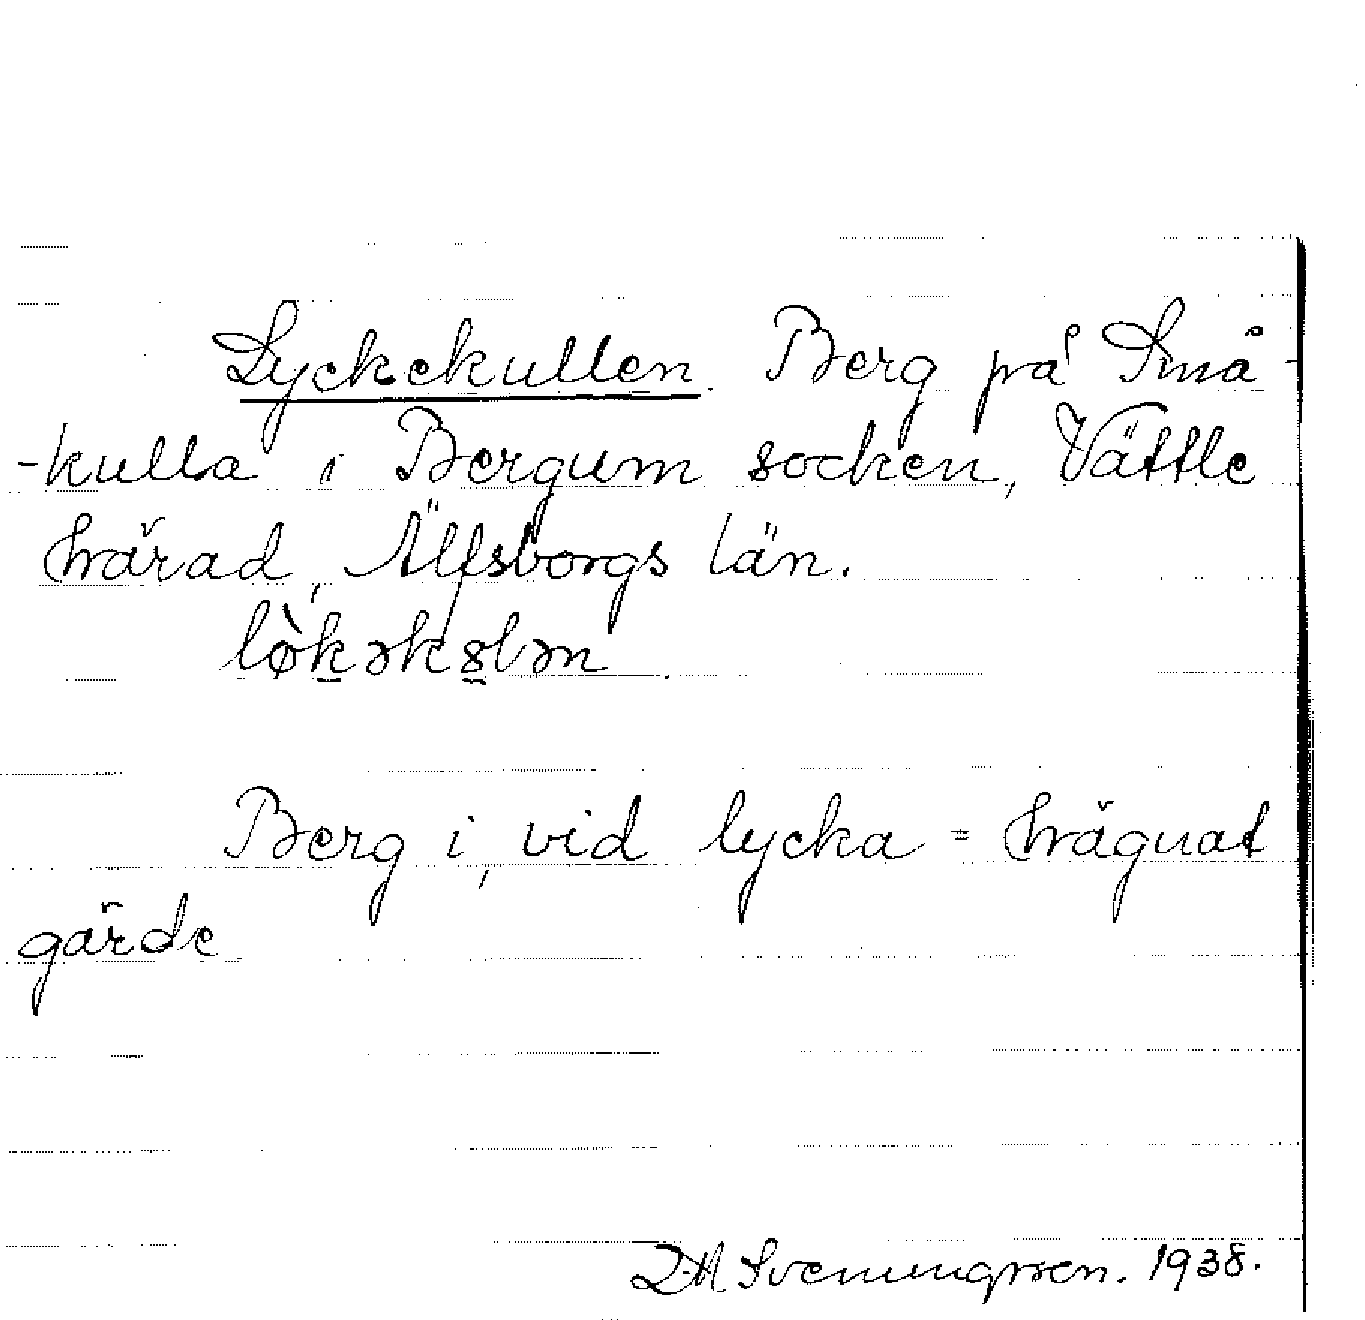 Lyckekullen. Berg på Små-
-kulla i Bergum socken, Vättle
härad, Älfsborgs län.
lø̀kəkȣlən.
Berg i, vid lycka = hägnat
gärde
Svenungsson. 1938.